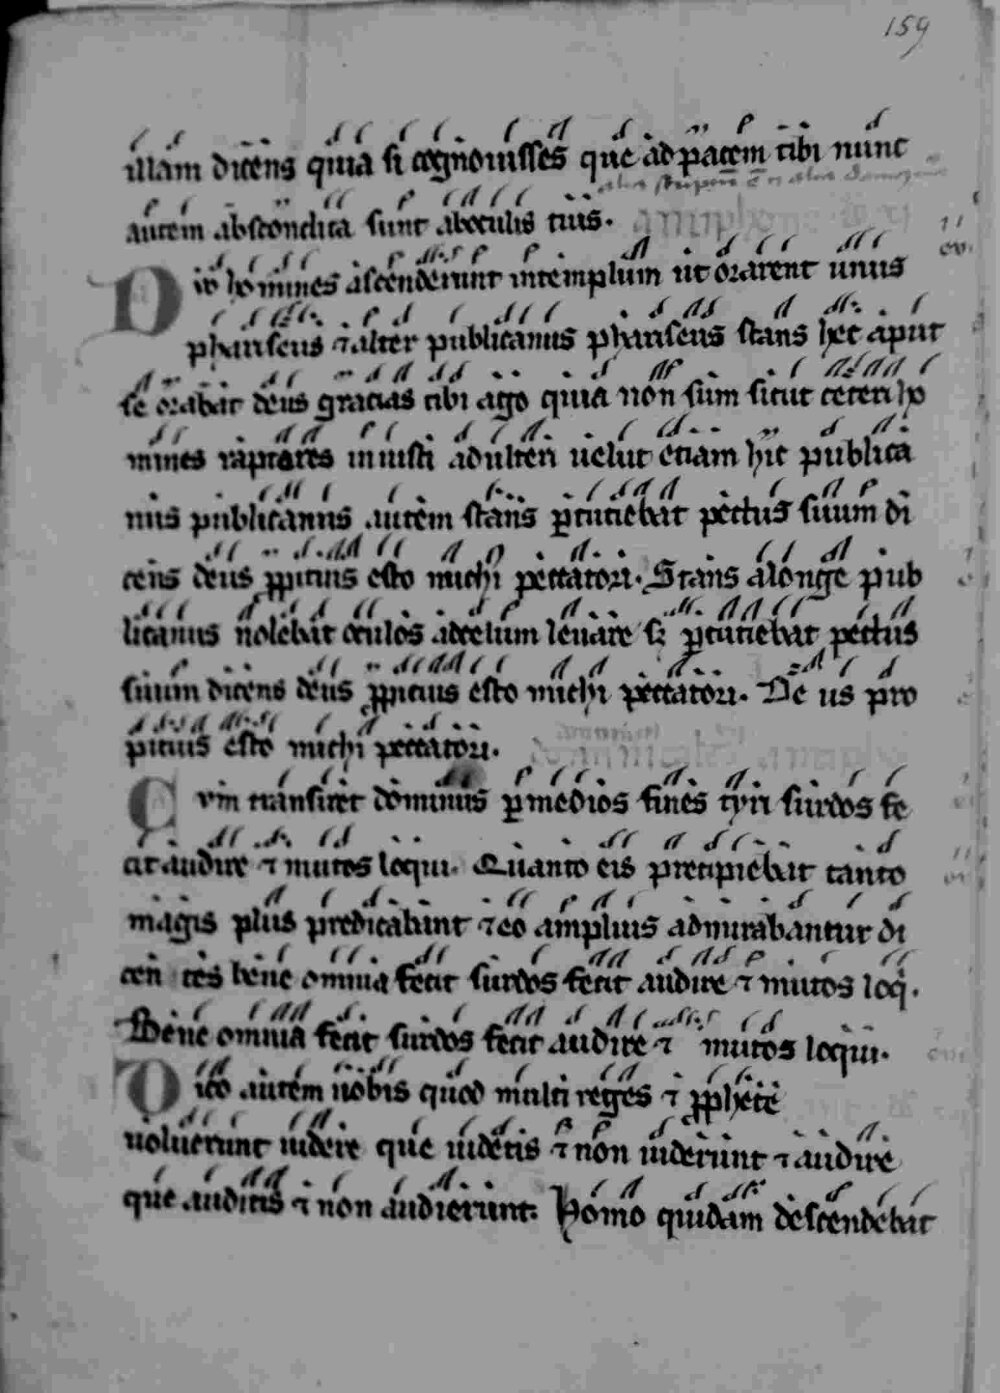 159
illam dicens quia si cognouisses que ad pacem tibi nunc
autem abscondita sunt aboculis tuis.
Dvo homines ascenderunt intemplum ut orarent unus
phariseus ⁊ alter publicanus phariseus stans hec aput
se orabat deus gracias tibi ago quia non sum sicut ceteri ho
mines raptores iniusti adulteri uelut etiam hic publica
nus publicanus autem stans ꝑcutiebat pectus suum di
cens deus ꝓpitius esto michi peccatori. Stans alonge pub
licanus nolebat oculos adcelum leuare sꝫ ꝑcutiebat pectus
suum dicens deus ꝓpicius esto michi peccatori. De us pro
pitius esto michi peccatori.
Cvm transiret dominus ꝑ medios fines tyri surdos fe
cit audire ⁊ mutos loqui. Quanto eis precipiebat tanto
magis plus predicabant ⁊ eo amplius admirabantur di
cen tes bene omnia fecit surdos fecit audire ⁊ mutos loq̇.
Bene omnia fecit surdos fecit audire ⁊ mutos loqui.
Dico autem uobis quod multi reges ⁊ ꝓphete
uoluerunt uidere que uidetis ⁊ non uiderunt ⁊ audire
que auditis ⁊ non audierunt. Homo quidam descendebat